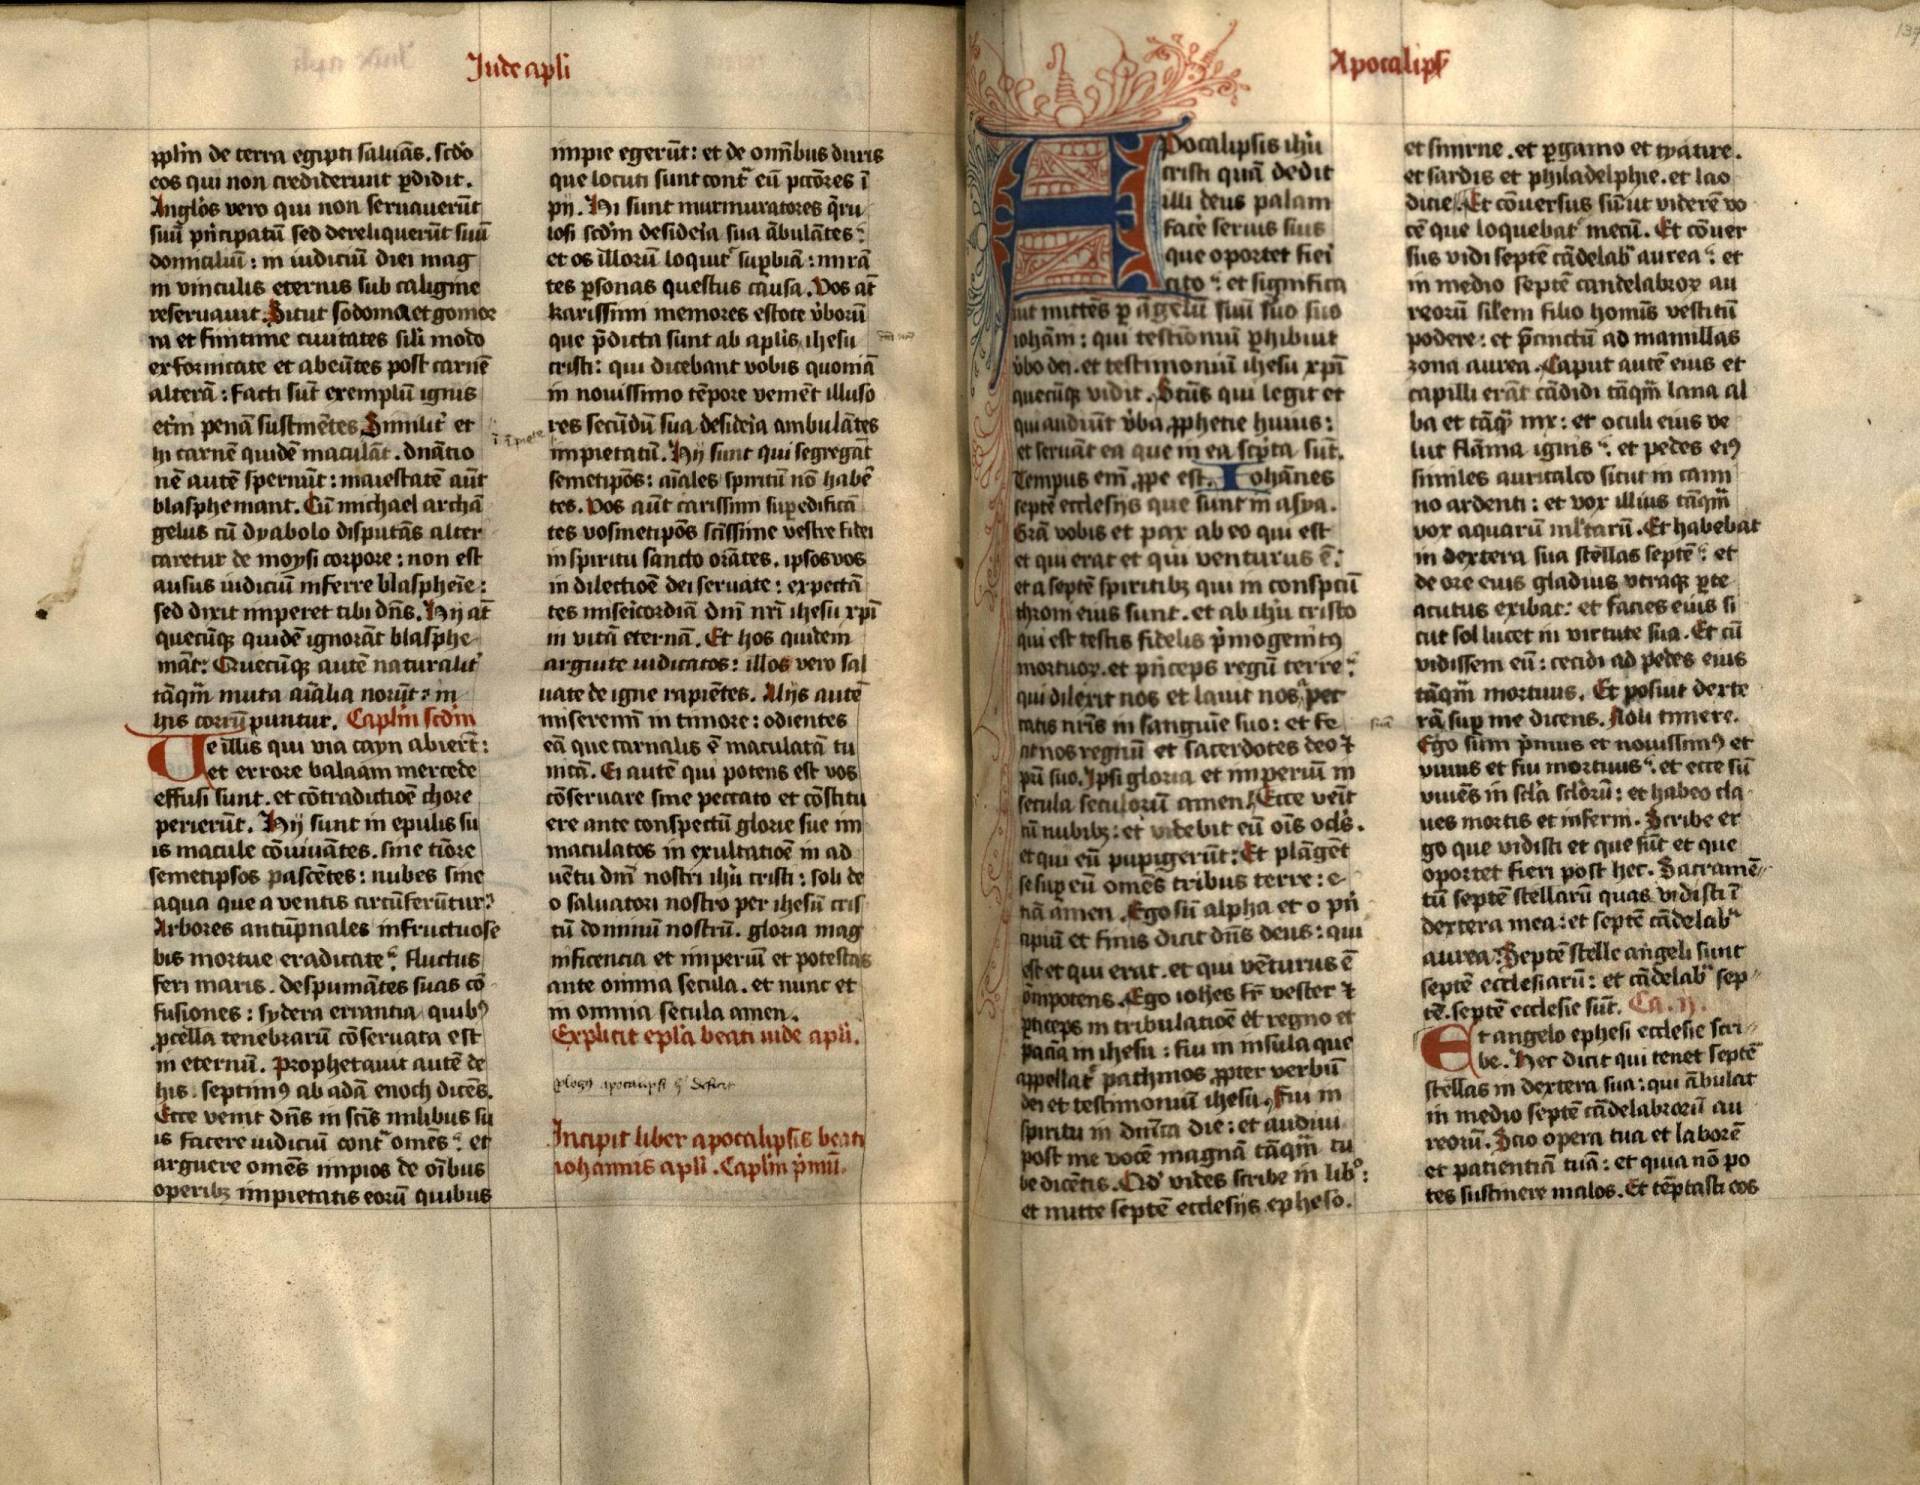 Jude apli
pplm de terra egipti saluās. scdo
eos qui non crediderunt ꝑdidit.
Anglos vero qui non seruauerūt
suū pncipatū sed dereliquerūt suū
domiciliū : in iudiciū diei mag
ni vinculis eternis sub caligine
reseruauit. Sicut sodoma et gomor
ra et finitime ciuitates sili modo
exfornicate et abeūtes post carnē
alterā : facti sūt exemplū ignis
et̄ni penā sustinētes Similit̄ et
hi carnē quidē maculāt. dnātio
nē autē spernūt : maiestatē aūt
blasphemant. Cū michael archā
gelus cū dyabolo disputās alter
caretur de moysi corpore : non est
ausus iudiciū inferre blasphēie :
sed dixit imperet tibi dn̄s. Hij at̄
quecūqꝫ quidē ignorāt blasphe
māt: Quecūqꝫ autē naturalit̄
tāqm̄ muta aīalia norūt: in
hijs corrūpuntur. Caplm scdm
Ue illis qui via cayn abiert̄ :
et errore balaam mercede
effusi sunt. et cōtradictioē chore
perierūt. Hij sunt in epulis su
is macule cōuiuātes. sine tiōre
semetipsos pascētes : nubes sine
aqua que a ventis circūferūtur:
Arbores autūpnales infructuose
bis mortue eradicate : fluctus
feri maris. despumātes suas cō
fusiones : sydera errantia quibꝰ
pcella tenebrarū cōseruata est
in eternū. Prophetauit autē de
his . septimꝰ ab adā enoch dicēs.
Ecce venit dn̄s in scīs milibus su
is facere iudiciū cont̄ omēs : et
arguere omēs impios de oībus
operibꝫ impietatis eorū quibus
impie egerūt : et de om̄ibus duris
que locuti sunt cont̄ eū pctōres ī
pij. Hi sunt murmuratores q̄ru
losi scdm desideia sua ābulātes :
et os illorū loquit̄ supbiā : mirā
tes ꝑsonas questus causa. Vos at̄
karissimi memores estote v̄borū
que p̄dicta sunt ab aplis ihesu
cristi : qui dicebant vobis quoniā
in nouissimo tēpore venient̄ illuso
res secūdū sua desideia ambulātes
impietatū. Hij sunt qui segregāt
semetipōs : aīales spiritū nō habē
tes. Vos aūt carissimi sup edifica
tes vosmetipōs scīssime vestre fidei
in spiritu sancto orātes. ipsos vos
in dilectioē dei seruate : expectā
tes miseicordiā dnī nrī ihesu xpī
in vitā eternā. Et hos quidem
arguite iudicatos : illos vero sal
uate de igne rapiētes. Alijs autē
miseremī in timore : odientes
eā que carnalis ē maculatā tu
nicā. Ei autē qui potens est vos
cōseruare sine peccato et cōstitu
ere ante conspectū glorie sue im
maculatos in exultatioē in ad
uētu dnī nostri ihū cristi : soli de
o saluatori nostro per ihesū cris
tū dominū nostrū. gloria mag
nificencia et imperiū et potestas
ante omnia secula. et nunc et
in omnia secula amen.
Explicit epla beati iude apli.
plogꝰ apocalipsis hic deficit
Incipit liber apocalipsis beati
iohannis apli. Caplm p̄mū.
Apocalips
Apocalipsis ihū
cristi quā dedit
illi deus palam
facē seruis suis
que oportet fieri
cito : et significa
uit mittēs ꝑ āgelū suū suo suo
iohām : qui testīoniū ꝑhibuit
v̄bo dei. et testimoniū ihesu xpī
quecūqꝫ vidit. Btūs qui legit et
qui audiūt v̄ba ꝓphetie huius :
et seruāt ea que in ea scpta sūt.
Tempus enī ꝓpe est. Iohānes
septē ecclesijs que sunt in asya.
Grā vobis et pax ab eo qui est
et qui erat et qui venturus ē :
et a septē spiritibꝫ qui in conspcū
throni eius sunt. et ab ihū cristo
qui est testis fidelis p̄mogenitꝰ
mortuoꝝ. et p̄nceps regū terre :
qui dilexit nos et lauit nos a pec
catis nrīs in sanguīe suo : et fe
cit nos regnū et sacerdotes deo ⁊
pri suo. Ipsi gloria et imperiū in
secula seculorū amen. Ecce veīt
cū nubibꝫ : et videbit eū oīs ocls.
et qui eū pupigerūt : Et plāgēt
se sup eū omēs tribus terre : e
tiā amen. Ego sū alpha et o pn̄
cipiū et finis dicit dn̄s deus : qui
est et qui erat. et qui vēturus ē
ōnipotens. Ego iohes fr̄ vester ⁊
pticeps in tribulatioē et regno et
paciā in ihesu : fui in insula que
appellat̄ pathmos ꝓpter verbū
dei et testimoniū ihesu. Fui in
spiritu in dnīca die : et audiui
post me vocē magnā tāqm̄ tu
be dicētis. Qd vides scribe in libᵒ :
et mitte septē ecclesijs epheso.
et smirne . et ꝑgamo et tyatire.
et sardis et philadelphie. et lao
dicie. Et cōuersus sū ut viderē vo
cē que loquebat̄ mecū. Et cōuer
sus vidi septē cādelab̄ aurea : et
in medio septē candelabroꝝ au
reorū silem filio homīs vestitū
podere : et p̄cinctū ad mamillas
zona aurea. Caput autē eius et
capilli erāt cādidi tāqm̄ lana al
ba et tāqꝫ nix : et oculi eius ve
lut flāma ignis : et pedes eiꝰ
similes auricalco sicut in cami
no ardenti : et vox illius tāqm̄
vox aquarū mltarū. Et habebat
in dextera sua stellas septē : et
de ore eius gladius vtraqꝫ ꝑte
acutus exibat : et facies eius si
cut sol lucet in virtute sua. Et cū
vidissem eū : cecidi ad pedes eius
tāqm̄ mortuus. Et posuit dexte
rā sup me dicens. Noli timere.
Ego sum p̄mus et nouissimꝰ et
viuus et fui mortuus : et ecce sū
viuēs in scla sclorū : et habeo cla
ues mortis et inferni. Scribe er
go que vidisti et que sūt et que
oportet fieri post hec. Sacramē
tū septē stellarū quas vidisti ī
dextera mea : et septē cādelab̄
aurea. Septē stelle angeli sunt
septē ecclesiarū : et cādelab̄ sep
tē. septē ecclesie sūt. Ca. ij.
Et angelo ephesi ecclesie scri
be. Hec dicit qui tenet septē
stellas in dextera sua : qui ābulat
in medio septē cādelabrorū au
reorū. Scio opera tua et laborē
et patientiā tuā : et quia nō po
tes sustinere malos. Et tēptasti eos